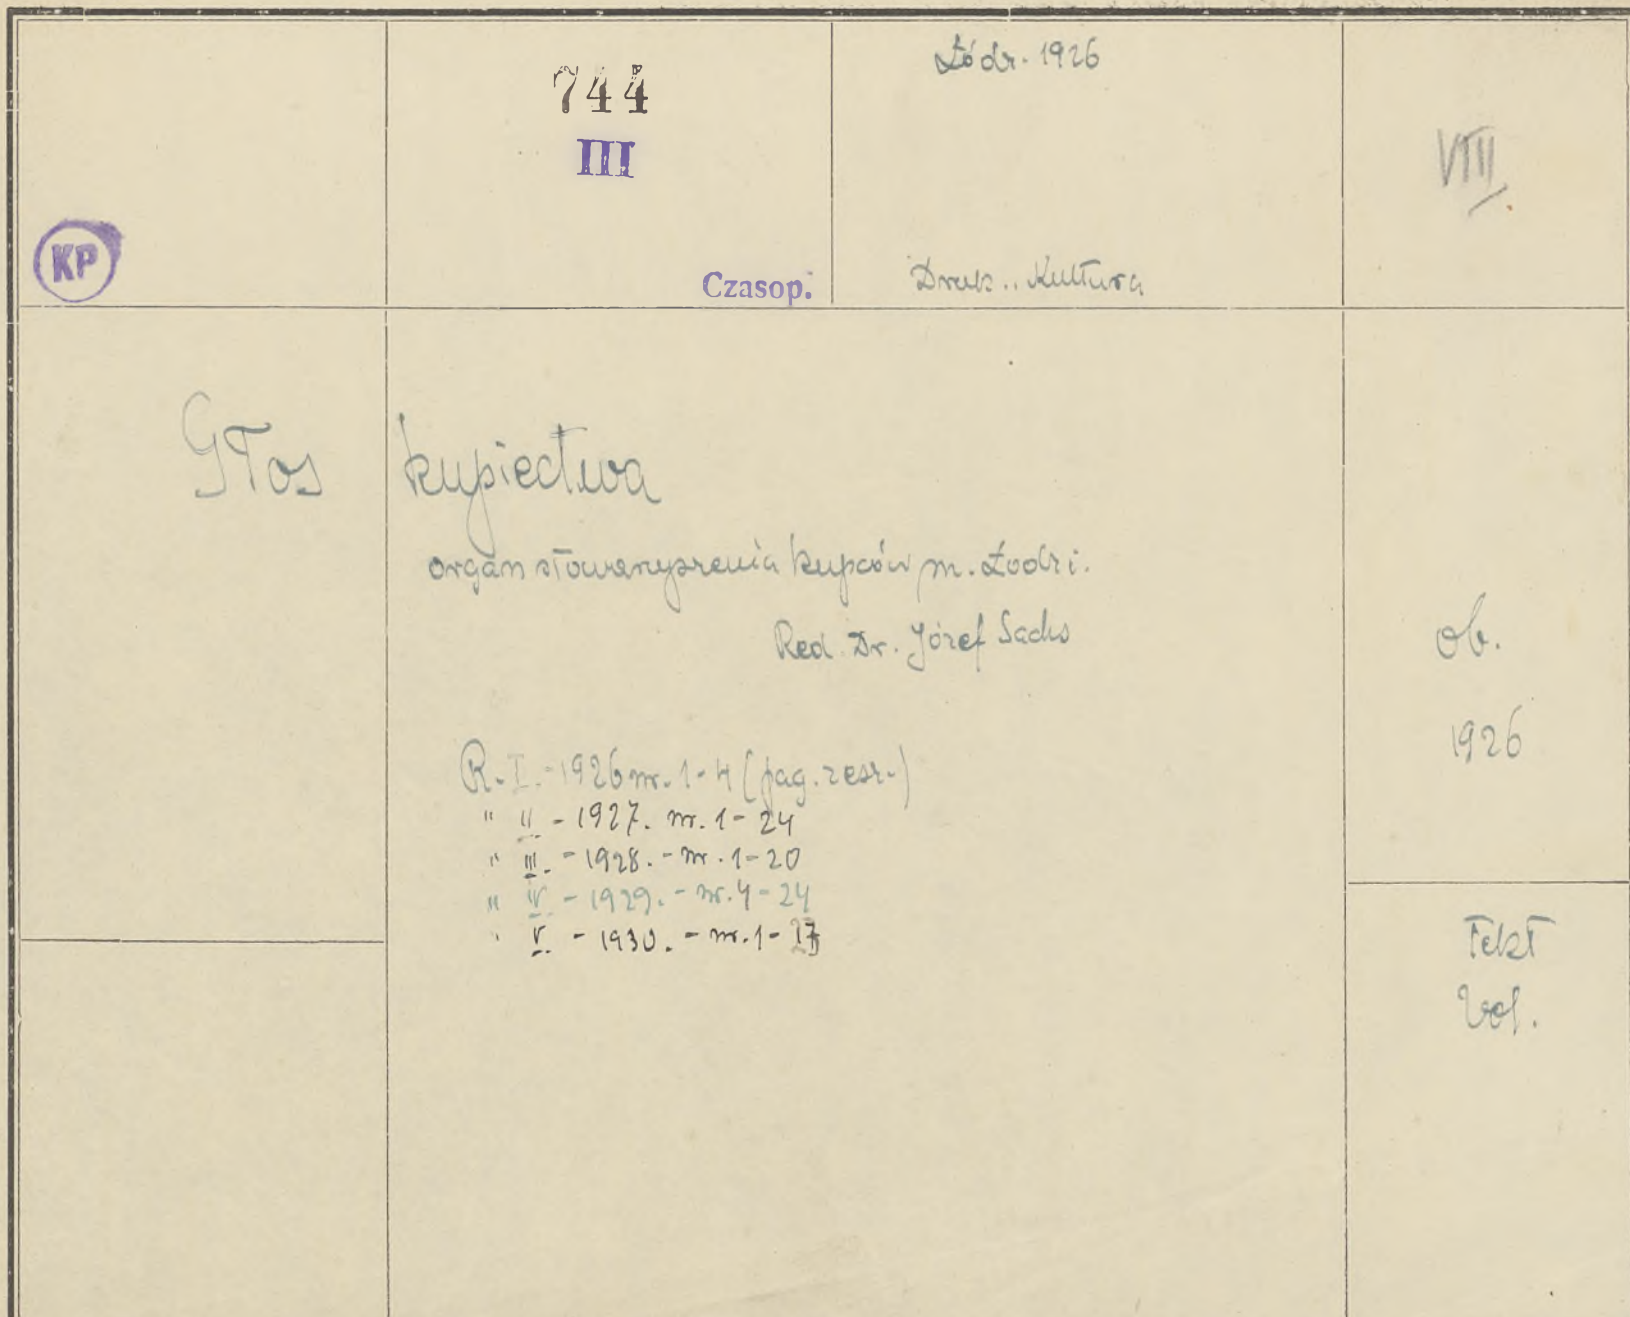 744
III
Czasop.
KP
Łódź. 1926
Druk. „Kultura
VIII.
Głos kupiectwa
organ stowarzyszenia kupców m. Łodzi.
Red. Dr. Józef Sachs
R. I. - 1926 nr. 1-4 (pag. zesz.)
" II - 1927. nr. 1-24
" III. - 1928. - nr. 1-20
" IV - 1929. - nr. 4-24
" V. - 1930. - nr. 1-
ob.
1926
Tekt
Vol.